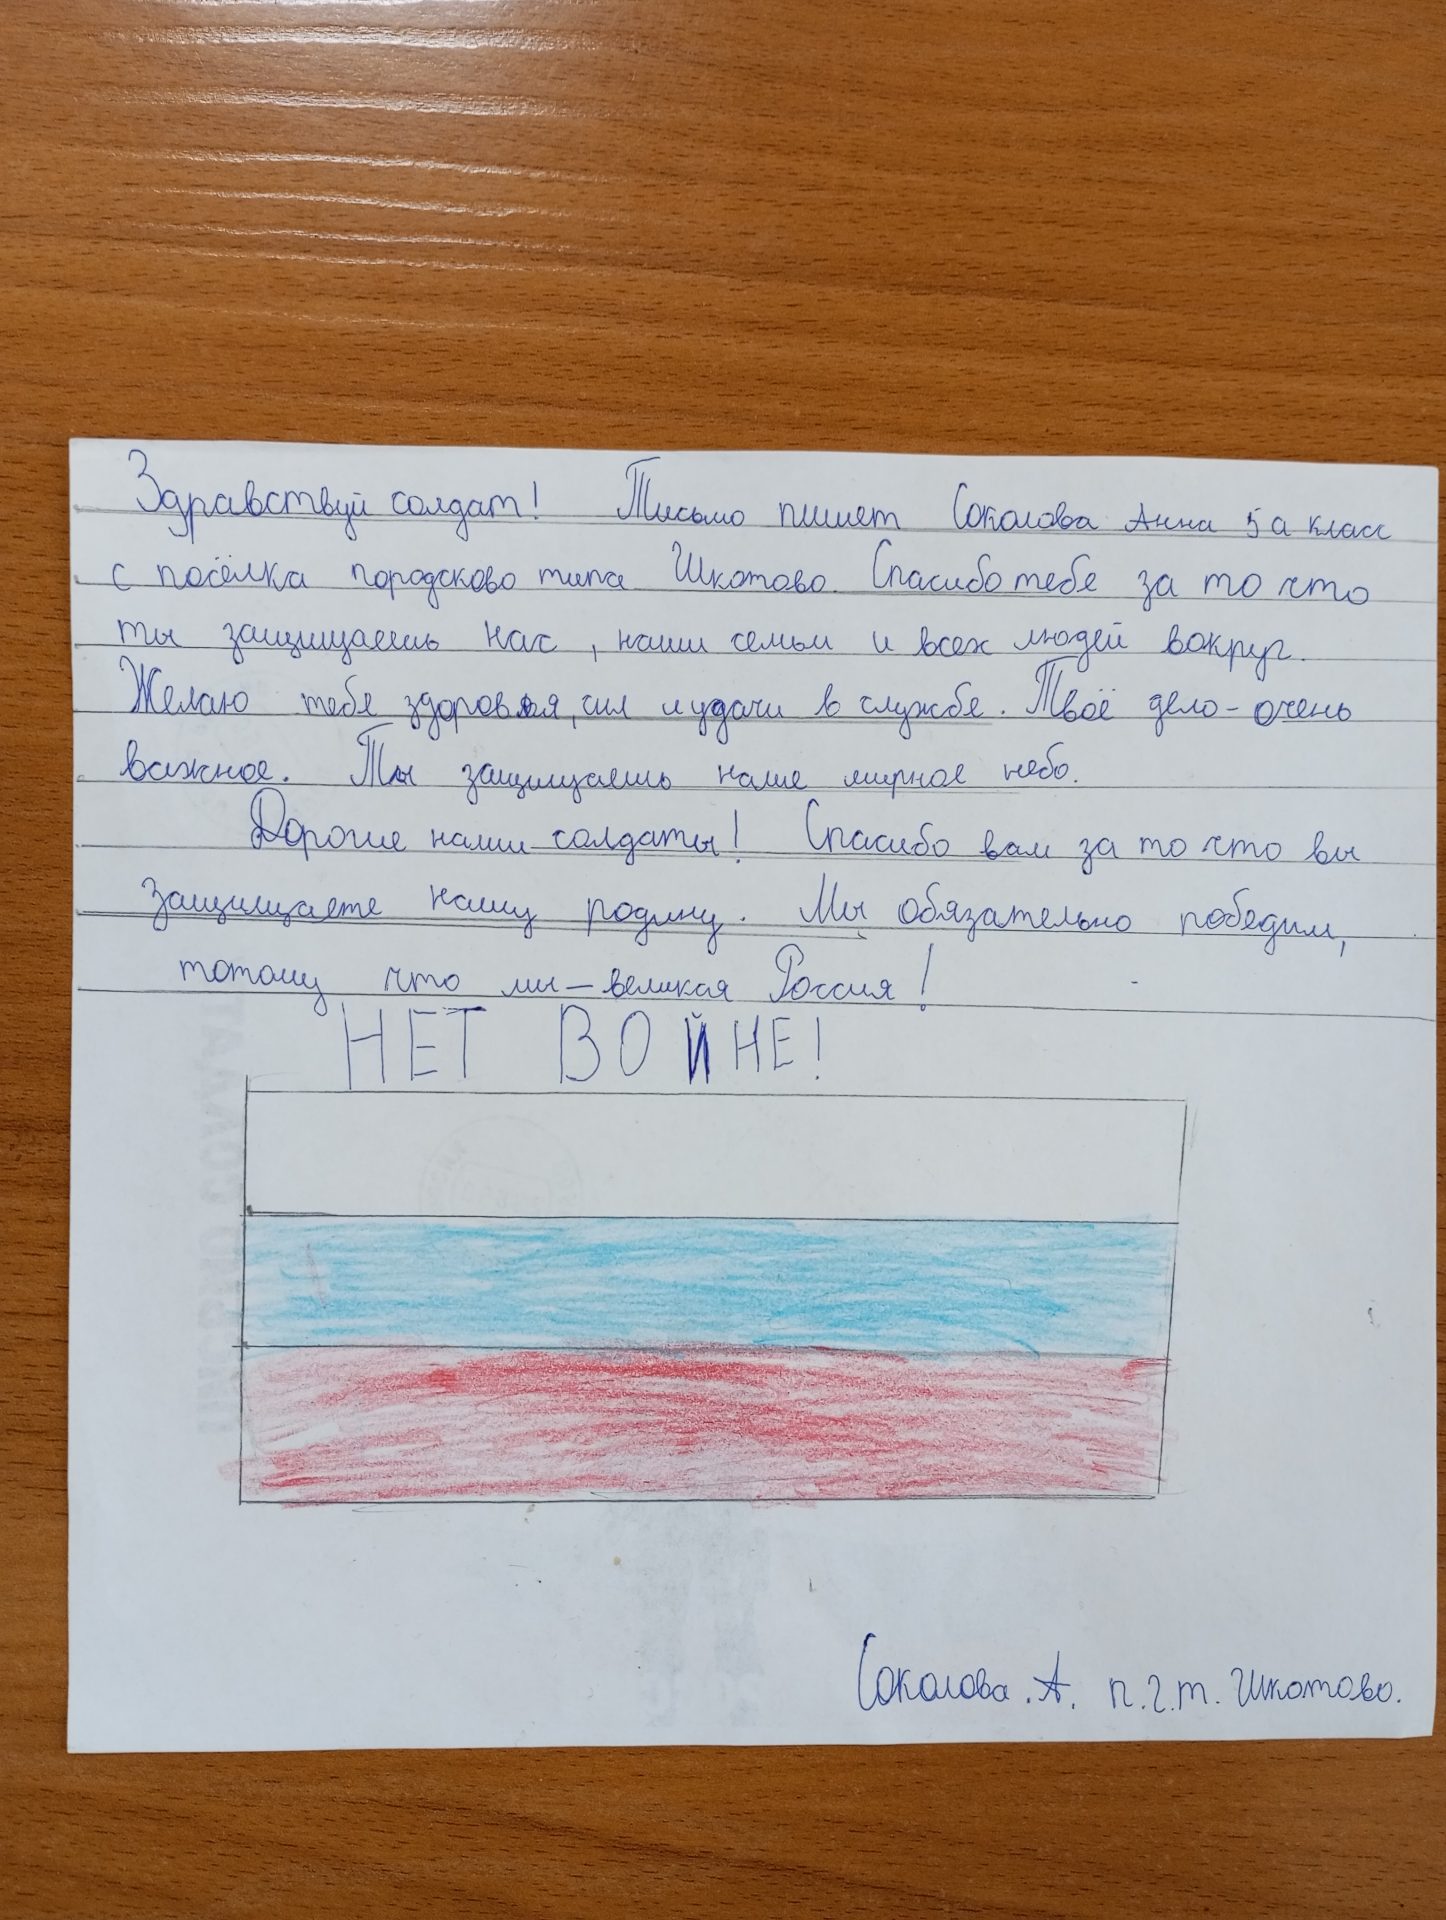 Здравствуй солдат! Письмо пишет Соколова Анна 5 а класс
с посёлка породсково типа Шкотово. Спасибо тебе за то что
ты защищаешь нас, наши семьи и всех людей вокруг.
Желаю тебе здоровья, сил и удачи в службе. Твоё дело - очень
важное. Ты защищаешь наше мирное небо.
Дорогие наши солдаты! Спасибо вам за то что вы
защищаете нашу родину. Мы обязательно победим,
потому что мы - великая Россия!
НЕТ ВОЙНЕ!
Соколова. А. п.г.т. Шкотово.